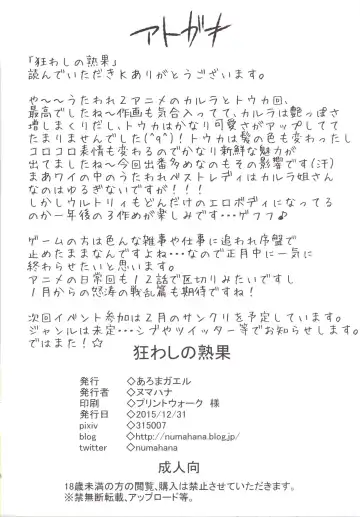 アトガキ
「狂わしの熟果」
読んでいただきKありがとうございます。
や〜〜〜うたわれ2アニメのカルラとトウカ回、
最高でしたね〜作画も気合入ってて、カルラは艶っぽさ
増しまくりだし、トウカはかなり可愛さがアップしてて
たまりませんでした(^q^)!トウカは髪の色も変わったし
コロコロ表情も変わるのでかなり新鮮な魅力が
出てましたね〜今回出番多めなのもその影響です(汗)
まあワイの中のうたわれベストレディはカルラ姉さん
なのはゆるぎないですが!!!
しかしウルトリィもどんだけのエロボディになってる
のか一年後の3作めが楽しみです…ゲフフ♪
ゲームの方は色んな雑事や仕事に追われ序盤で
止めたままなんですよね…なので正月中に一気に
終わらせたいと思います。
アニメの日常回も12話で区切りみたいですし
1月からの怒涛の戦乱篇も期待ですね!
次回イベント参加は2月のサンクリを予定しています。
ジャンルは未定…シブやツイッター等でお知らせします。
ではまた!☆
狂わしの熟果
発行 ◇あろまガエル
発行者 ◇ヌマハナ
印刷 ◇プリントウォーク 様
発行日 ◇2015/12/31
pixiv ◇315007
blog ◇http://numahana.blog.jp/
twitter ◇numahana
成人向
18歳未満の方の閲覧、購入は禁止させていただきます。
※禁無断転載、アップロード等。